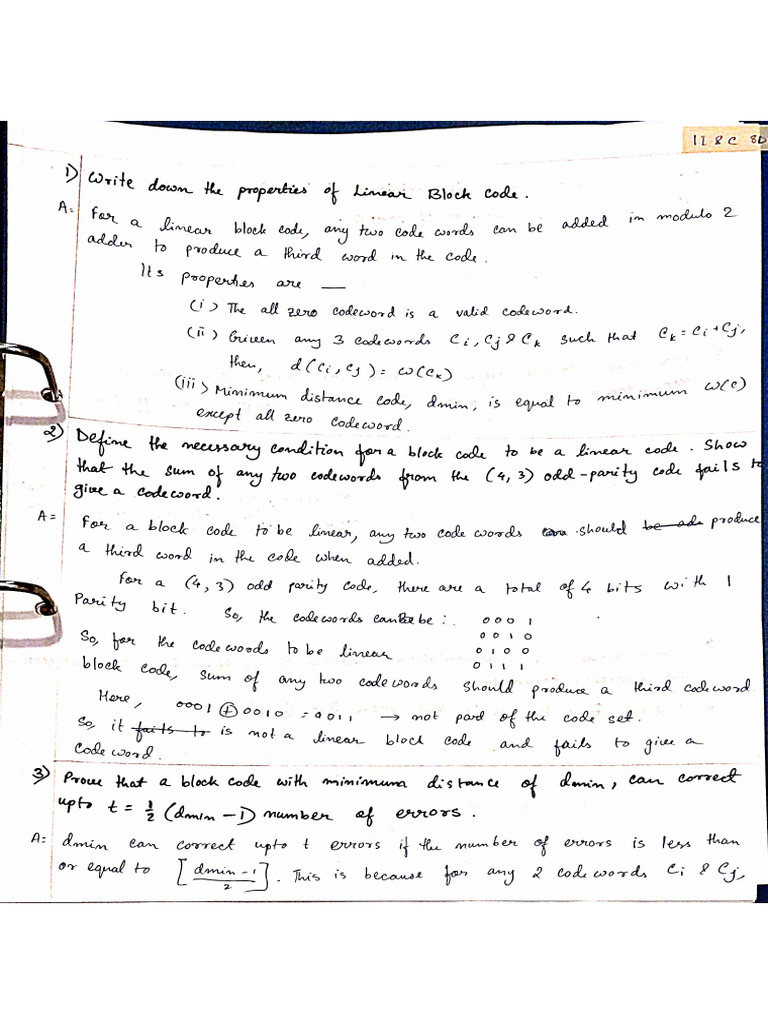 IL & C 8D
1) Write down the properties of Linear Block code.
A= For a linear block code, any two code words can be added in modulo 2
adder to produce a third word in the code.
Its properties are —
(i) The all zero codeword is a valid codeword.
(ii) Given any 3 codewords Ci, Cj & Ck such that Ck = Ci + Cj,
then, d(Ci, Cj) = w(Ck)
(iii) Minimum distance code, dmin, is equal to minimum w(c)
except all zero codeword.
2) Define the necessary condition for a block code to be a linear code. Show
that the sum of any two codewords from the (4, 3) odd-parity code fails to
give a codeword.
A= For a block code to be linear, any two code words should be produce
a third word in the code when added.
For a (4, 3) odd parity code, there are a total of 4 bits with 1
Parity bit. So, the codewords can be:
0 0 0 1
0 0 1 0
So, for the codewords to be linear 0 1 0 0
0 1 1 1
block code, sum of any two codewords should produce a third codeword
Here, 0001 ⊕ 0010 = 0011 → not part of the code set.
So, it fails to is not a linear block code and fails to give a
Codeword.
3) Prove that a block code with minimum distance of dmin, can correct
upto t = 1/2 (dmin - 1) number of errors.
A: dmin can correct upto t errors if the number of errors is less than
or equal to [dmin - 1 / 2]. This is because for any 2 codewords Ci & Cj,